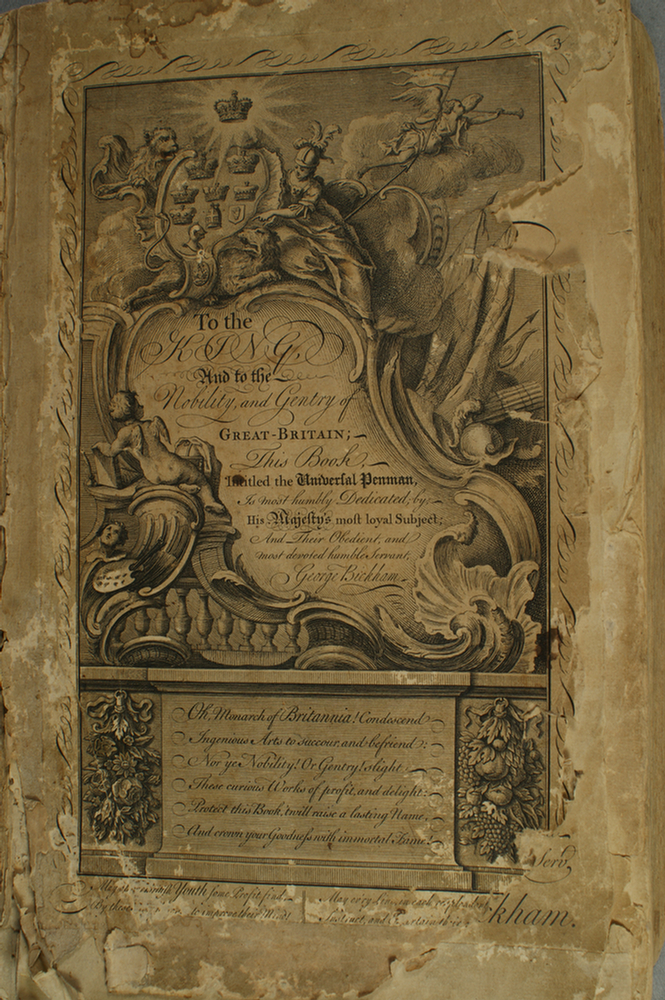 3
To the
KING,
And to the
Nobility, and Gentry of
GREAT-BRITAIN;
This Book,
Intitled the Univerſal Penman,
Is most humbly Dedicated, by
His Majeſty's moſt loyal Subject;
And Their Obedient, and
most devoted humble Servant,
George Bickham.
Oh, Monarch of Britannia! Condescend
Ingenious Arts to succour, and befriend:
Nor ye Nobility! Or Gentry! slight,
These curious Works of profit, and delight:
Protect this Book, 'twill raise a lasting Name,
And crown your Goodneſs with immortal Fame!
Serv
Youth some Profit find,
to improve their Mind!
May every
Instruct, and
kham.